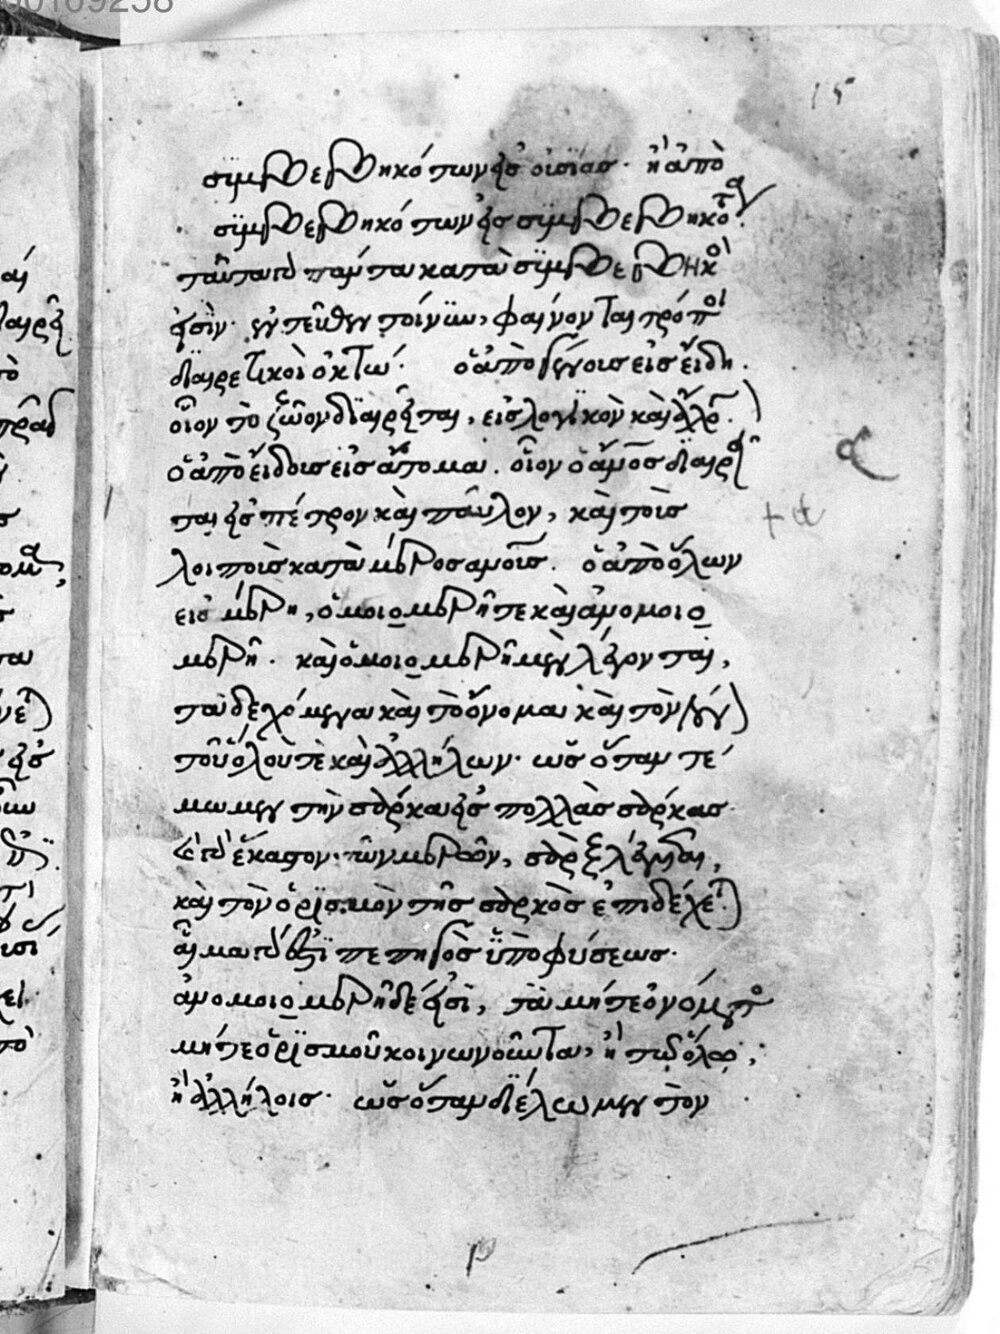 00109258
15
συμβεβηκότων εἰς οὐσίας· ἢ ἀπὸ
συμβεβηκότων εἰς συμβεβηκότα·
ταῦτα δὲ πάντα κατὰ συμβεβηκός
εἰσὶν· ἐντεῦθεν τοίνυν, φαίνονται τρόποι
διαιρετικοὶ ὀκτώ· ὁ ἀπὸ γένους εἰς εἴδη.
οἷον τὸ ζῶον διαιρεῖται, εἰς λογικὸν καὶ ἄλογον.
ὁ ἀπὸ εἴδους εἰς ἄτομα. οἷον ὁ ἄνος διαιρεῖ
ται εἰς πέτρον καὶ παῦλον, καὶ τοὺς
λοιποὺς κατὰ μέρος ἀνους. ὁ ἀπὸ ὅλων
εἰς μέρη, ὁμοιομερῆ τε καὶ ἀνομοιο
μερῆ. καὶ ὁμοιομερῆ μὲν λέγονται,
τὰ δεχόμενα καὶ τὸ ὄνομα καὶ τὸν
τοῦ ὅλου τὲ καὶ ἀλλήλων· ὡς ὅταν τέ
μωμεν τὴν σάρκα εἰς πολλὰς σάρκας·
ἕκαστον τῶν μερῶν, σὰρξ λέγεται,
καὶ τὸν ὁρισμὸν τῆς σαρκὸς ἐπιδέχεται
αἷμα πεπηγὸς ὑπὸ φύσεως.
ἀνομοιομερῆ δέ εἰσὶ, τὰ μήτε ὀνόματος
μήτε ὁρισμοῦ κοινωνοῦντα, ἢ τῷ ὅλῳ,
ἢ ἀλλήλοις· ὡς ὅταν διέλωμεν τὸν